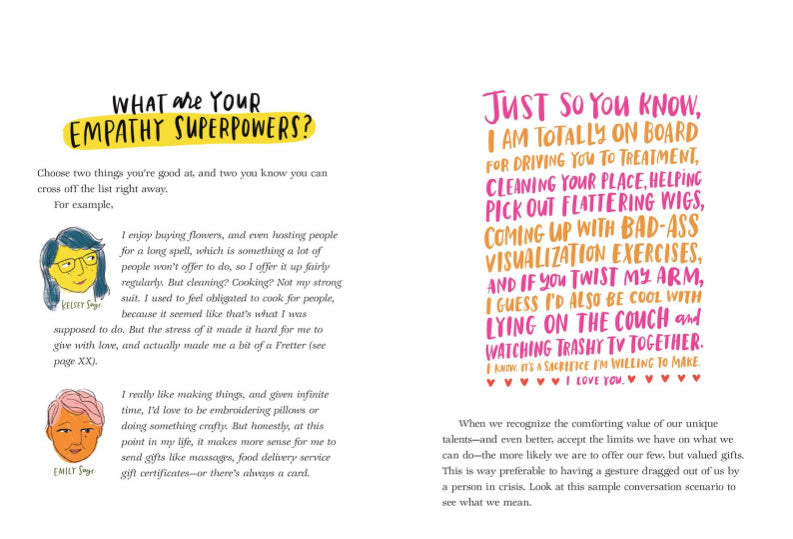 WHAT are YOUR
EMPATHY SUPERPOWERS?
Choose two things you're good at, and two you know you can
cross off the list right away.
For example,
I enjoy buying flowers, and even hosting people
for a long spell, which is something a lot of
people won't offer to do, so I offer it up fairly
regularly. But cleaning? Cooking? Not my strong
suit. I used to feel obligated to cook for people,
because it seemed like that's what I was
supposed to do. But the stress of it made it hard for me to
give with love, and actually made me a bit of a Fretter (see
page XX).
KELSEY Says
I really like making things, and given infinite
time, I'd love to be embroidering pillows or
doing something crafty. But honestly, at this
point in my life, it makes more sense for me to
send gifts like massages, food delivery service
gift certificates—or there's always a card.
EMILY Says
JUST SO YOU KNOW,
I AM TOTALLY ON BOARD
FOR DRIVING YOU TO TREATMENT,
CLEANING YOUR PLACE, HELPING
PICK OUT FLATTERING WIGS,
COMING UP WITH BAD-ASS
VISUALIZATION EXERCISES,
AND IF YOU TWIST MY ARM,
I GUESS I'D ALSO BE COOL WITH
LYING ON THE COUCH and
WATCHING TRASHY TV TOGETHER.
I KNOW. IT'S A SACRIFICE I'M WILLING TO MAKE.
I LOVE YOU.
When we recognize the comforting value of our unique
talents—and even better, accept the limits we have on what we
can do—the more likely we are to offer our few, but valued gifts.
This is way preferable to having a gesture dragged out of us by
a person in crisis. Look at this sample conversation scenario to
see what we mean.